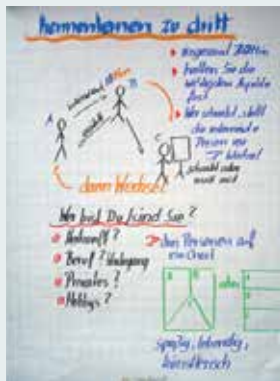 kennenlernen zu dritt
insgesamt
halten Sie die
wichtigsten Aspekte
fest
Wer schreibt, stellt
die
Person vor
→ Wechsel
A
B
C
interviewt
erzählt
schreibt oder
malt mit
dann Wechsel
Wer bist Du / sind Sie?
Herkunft?
Beruf? Werdegang
Privates?
Hobbys?
drei Personen auf
ein Chart
oder
spaßig, lebendig,
künstlerisch